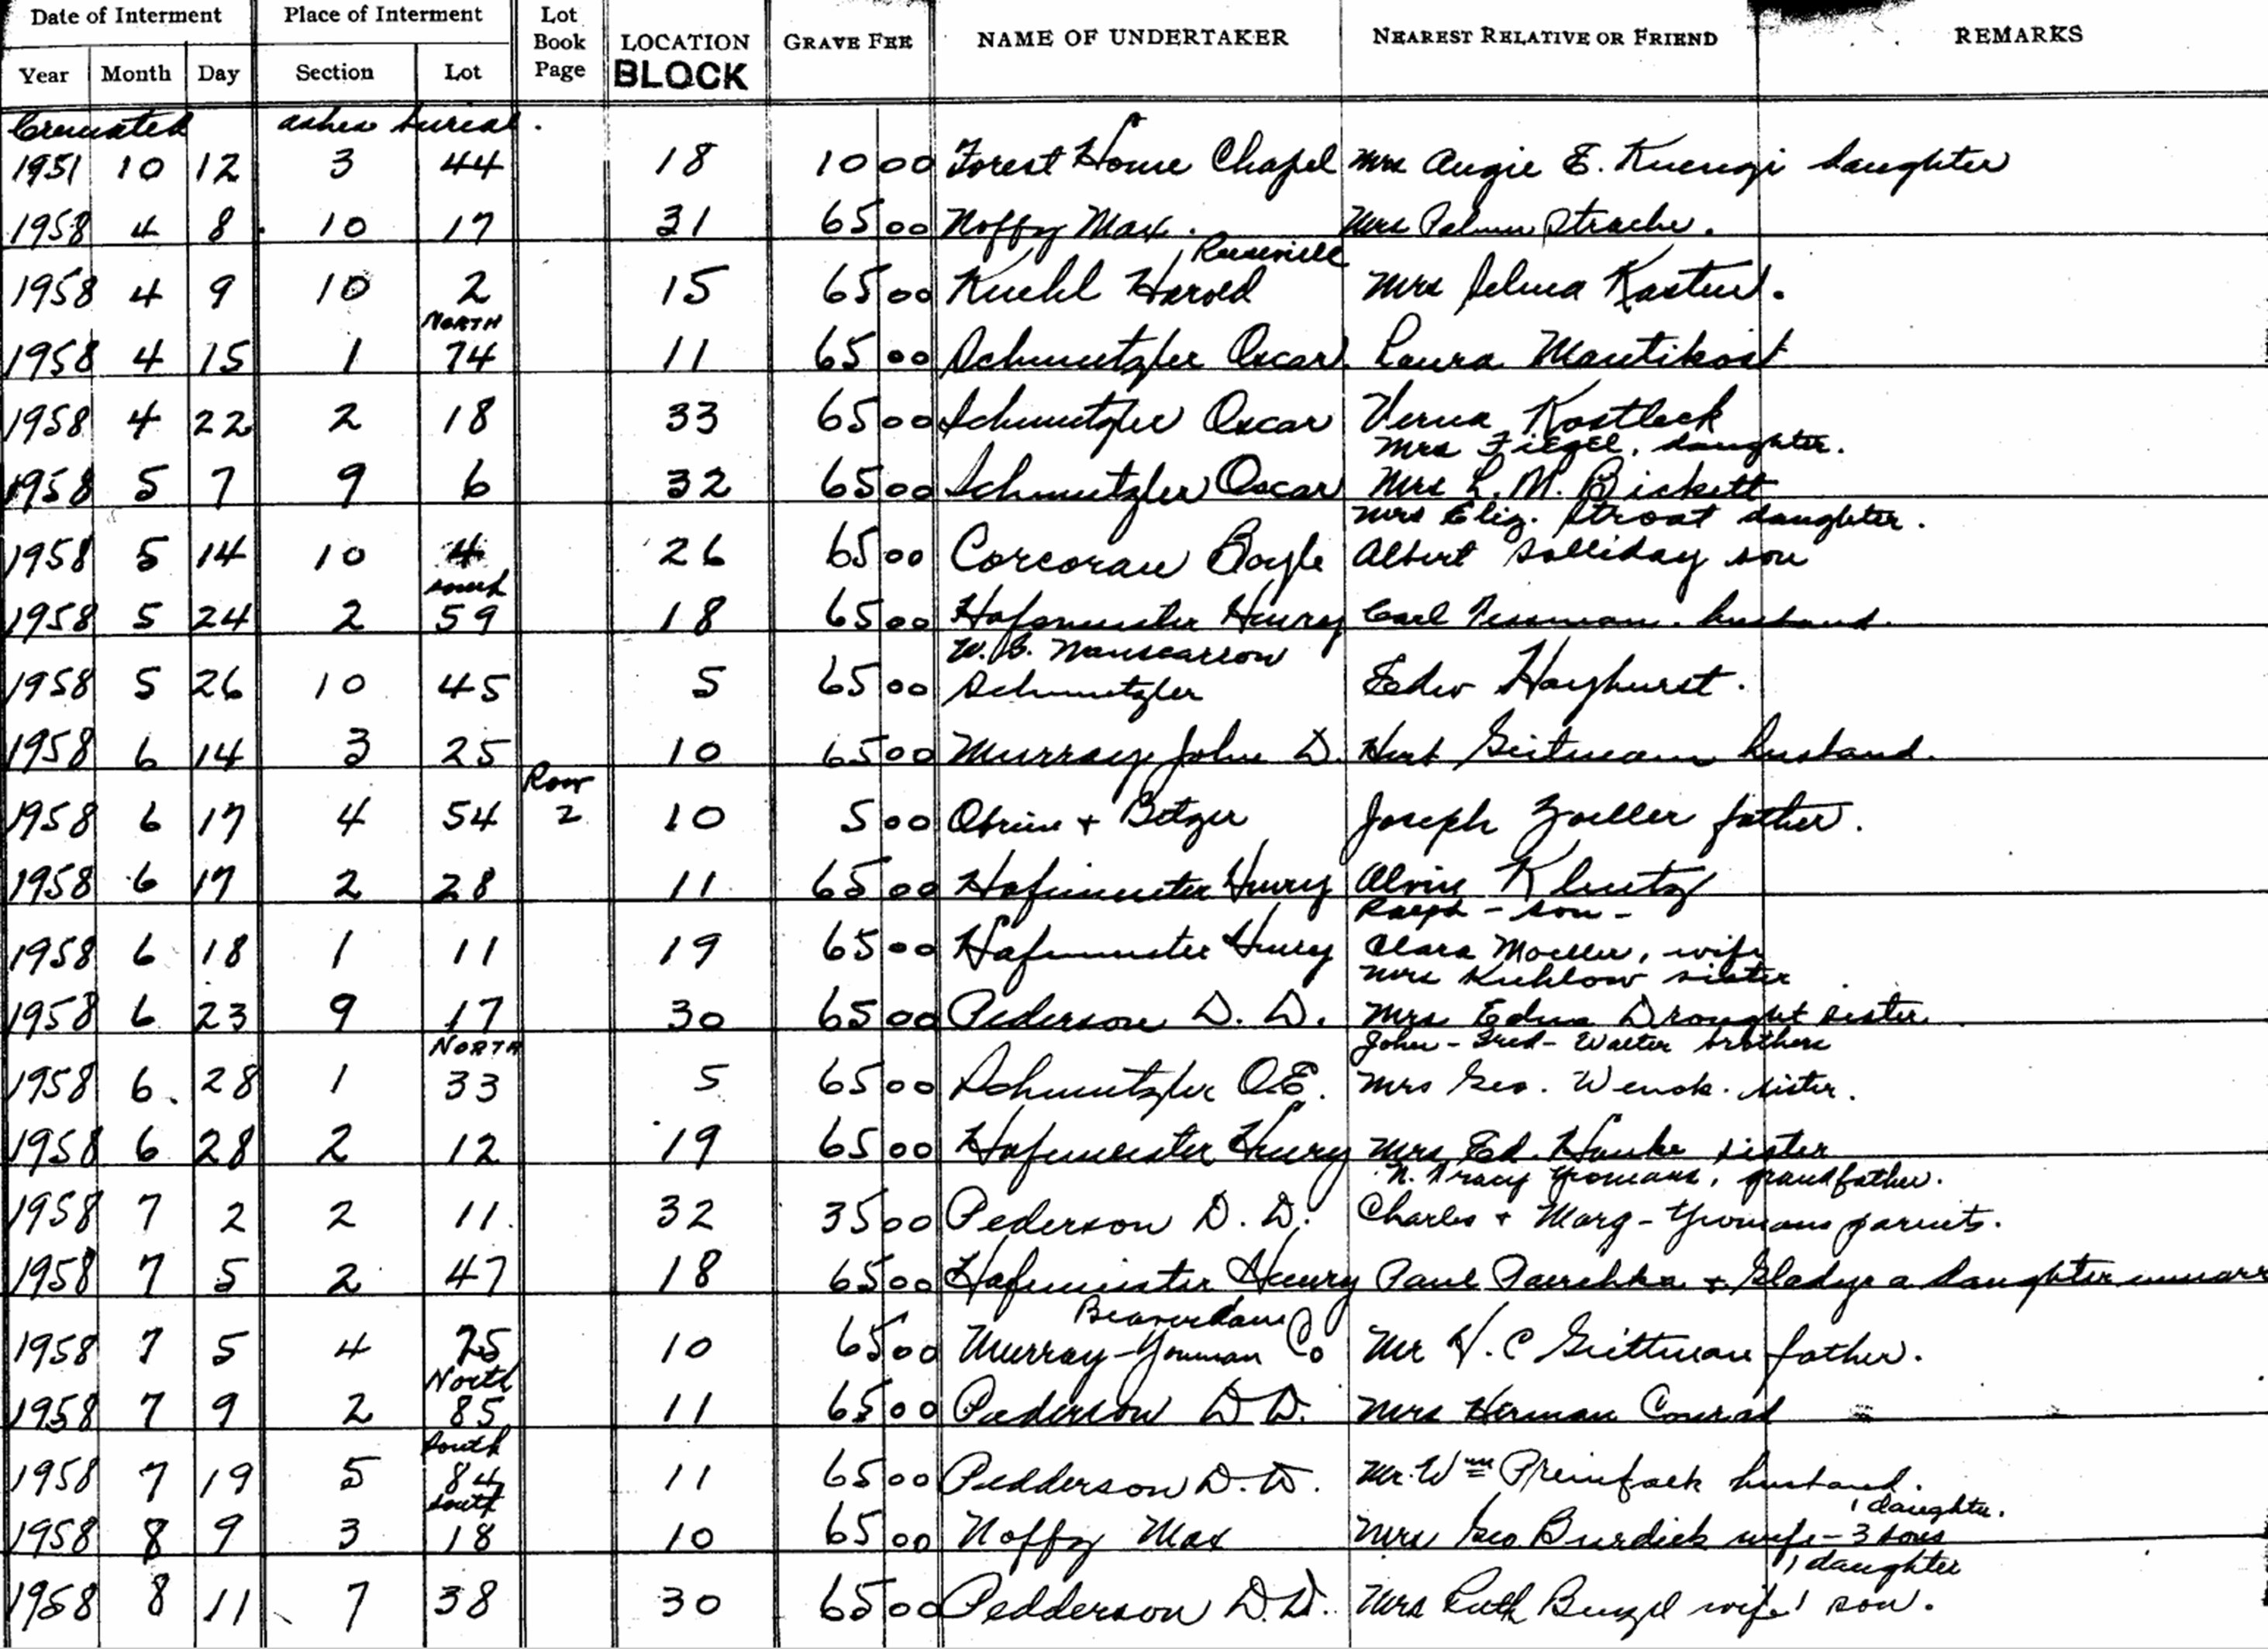 Date of Interment Place of Interment Lot Book Page LOCATION BLOCK GRAVE FEE NAME OF UNDERTAKER NEAREST RELATIVE OR FRIEND REMARKS
Year Month Day Section Lot
Cremated ashes burial.
1951 10 12 3 44 18 10 00 Forest Home Chapel Mrs Augie E. Kuenzi daughter
1958 4 8 10 17 31 65 00 Noffzy Max. Mrs Palmer Strache.
Reeseville
1958 4 9 10 2 15 65 00 Kuehl Harold Mrs Selma Kasten.
NORTH
1958 4 15 1 74 11 65 00 Schmutzler Oscar. Laura
1958 4 22 2 18 33 65 00 Schmutzler Oscar Verna
Mrs Fiegel, daughter.
1958 5 7 9 6 32 65 00 Schmutzler Oscar Mrs L. M. Bickett
Mrs Eliz. Stroat daughter.
1958 5 14 10 4 26 65 00 Corcoran Boyle Albert Solliday son
south
1958 5 24 2 59 18 65 00 Hafemeister Henry Carl husband.
W. G. Nanscarrow
1958 5 26 10 45 5 65 00 Schmutzler Edw Hayhurst.
1958 6 14 3 25 10 65 00 Murray John D. husband.
Row
1958 6 17 4 54 2 10 5 00 Obrien + Betzer Joseph Zoeller father.
1958 6 17 2 28 11 65 00 Hafemeister Henry Alvin Klentz
Ralph - son -
1958 6 18 1 11 19 65 00 Hafemeister Henry Clara Moeller, wife
Mrs Kuhlow sister
1958 6 23 9 17 30 65 00 Pederson D. D. Mrs Edna Drought sister
NORTH John - Fred - Walter brothers
1958 6. 28 1 33 5 65 00 Schmutzler O.E. Mrs Geo. Wenck. sister.
1958 6 28 2 12 19 65 00 Hafemeister Henry Mrs Ed. Hanke sister
N. Tracy Yeomans, grandfather.
1958 7 2 2 11 32 35 00 Pederson D. D. Charles + Marg - Yeomans parents.
1958 7 5 2 47 18 65 00 Hafemeister Henry Paul + Gladys a daughter
Beaverdam
1958 7 5 4 25 10 65 00 Murray - Yeoman Co Mr H. C father.
North
1958 7 9 2 85 11 65 00 Pederson D D. Mrs Herman Conrad
South
1958 7 19 5 84 11 65 00 Pedderson D. D. Mr. Wm husband.
south 1 daughter.
1958 8 9 3 18 10 65 00 Noffzy Max Mrs Geo Burdick wife - 3 sons
1 daughter
1958 8 11 7 38 30 65 00 Pedderson D. D. Mrs Ruth wife 1 son.